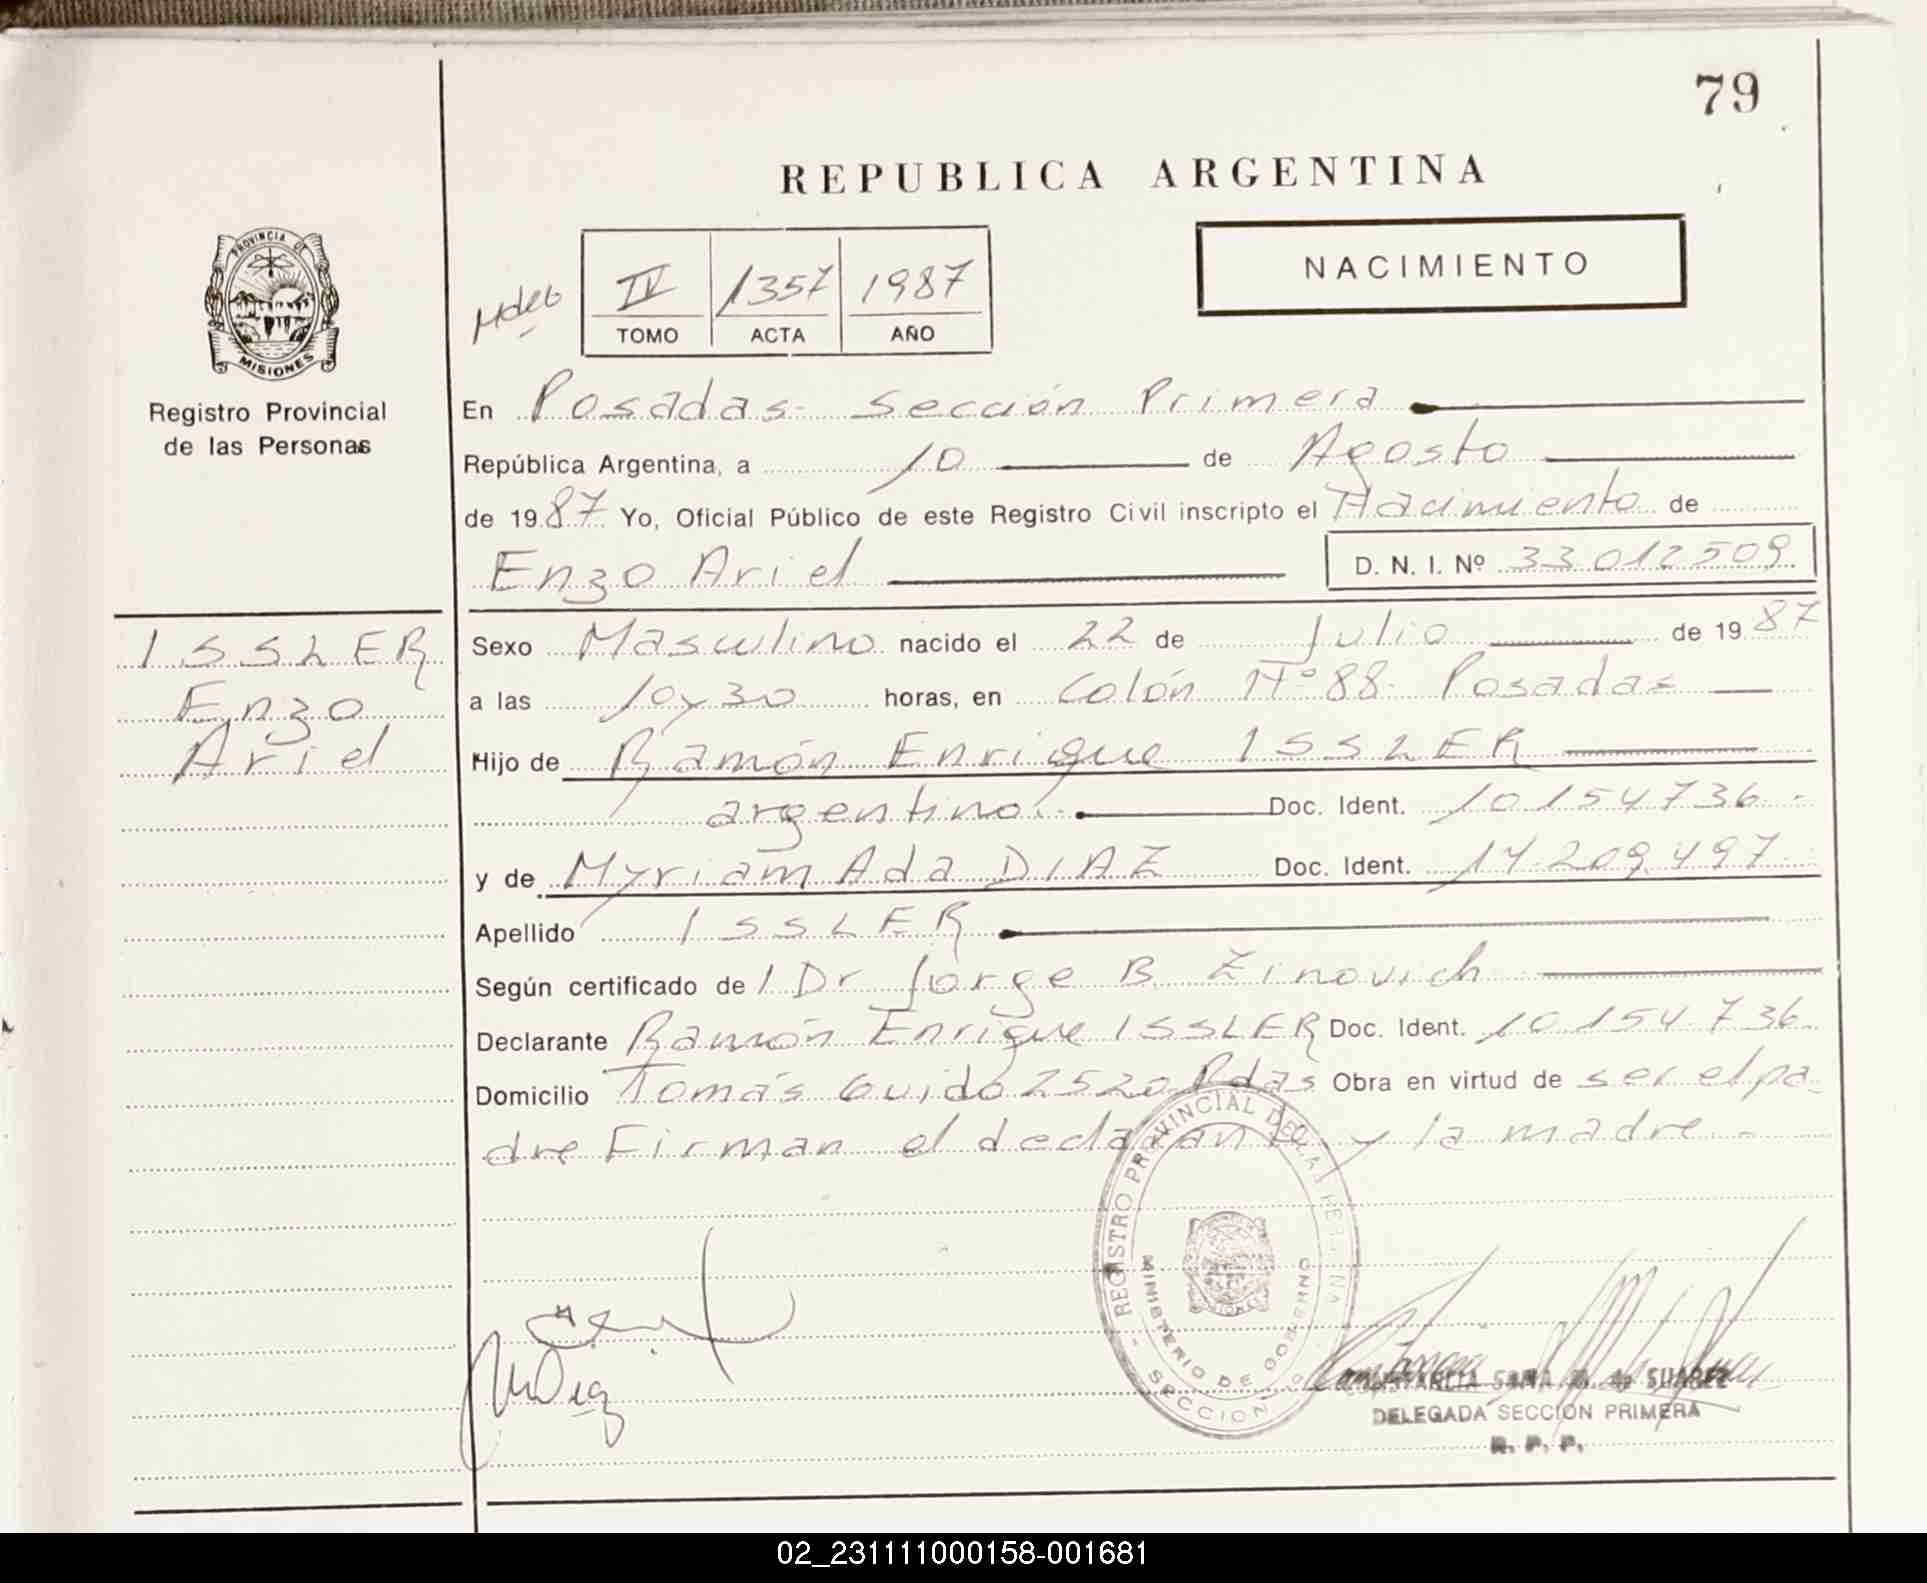 79
REPUBLICA ARGENTINA
PROVINCIA DE
MISIONES
Registro Provincial
de las Personas
NACIMIENTO
IV 1357 1987
TOMO ACTA AÑO
En Posadas- Sección Primera
República Argentina, a 10 de Agosto
de 1987 Yo, Oficial Público de este Registro Civil inscripto el Nacimiento de
Enzo Ariel D. N. I. Nº 33 012 509
ISSLER
Enzo
Ariel
Sexo Masculino nacido el 22 de Julio de 1987
a las 10 y 30 horas, en Colón Nº 88- Posadas
Hijo de Ramón Enrique ISSLER
argentino.- Doc. Ident. 10 154 736 -
y de Myriam Ada DIAZ Doc. Ident. 17.209.497-
Apellido ISSLER
Según certificado de l Dr Jorge B. Zinovich
Declarante Ramón Enrique ISSLER Doc. Ident. 10.154.736.
Domicilio Tomás Guido 2520 Pdas Obra en virtud de ser el pa-
dre Firman el declarante y la madre -
REGISTRO PROVINCIAL DE LAS PERSONAS
MINISTERIO DE GOBIERNO
SECCION
MDiaz
SUAREZ
DELEGADA SECCION PRIMERA
R. P. P.
02_231111000158-001681